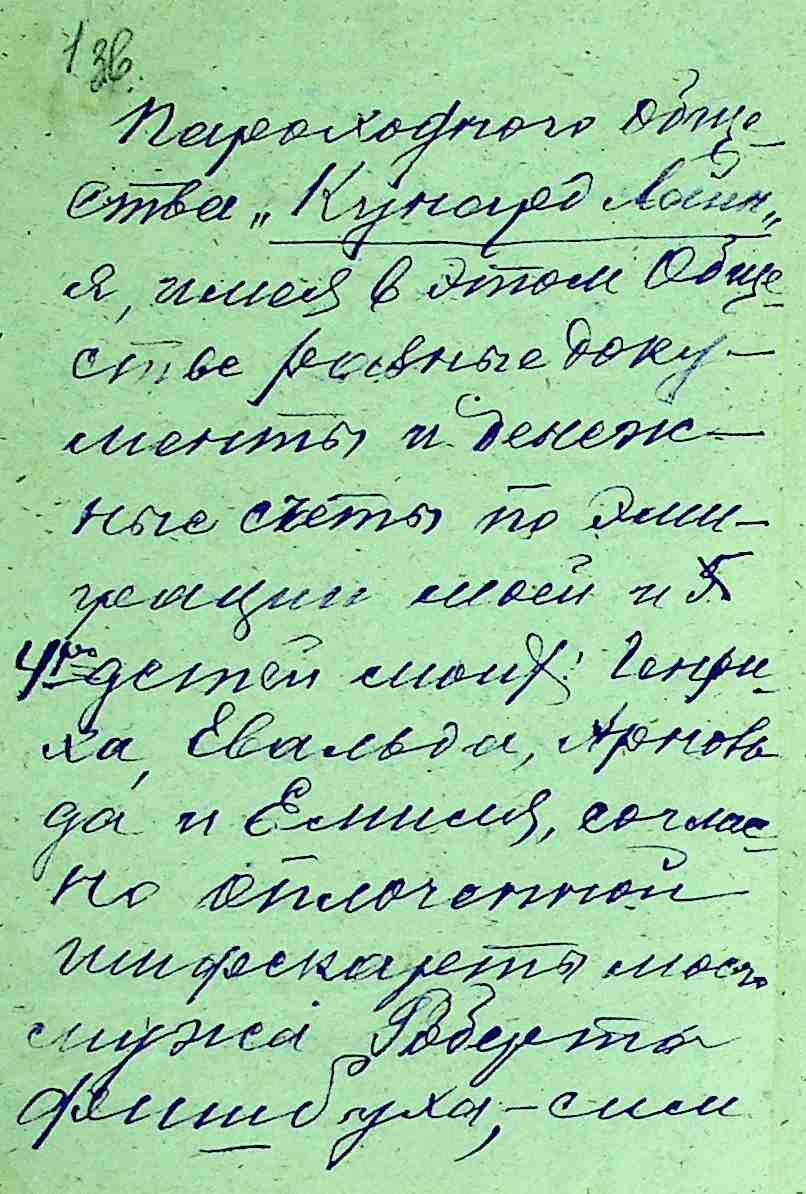 13в.
Пароходного Обще-
ства „Кунард Лайн„
я, имея в этом Обще-
стве разные доку-
менты и денеж-
ные счеты по эми-
грации моей и 5
4рх детей моих: Генри-
ха, Евальда, Арноль
да и Емиля, соглас-
но оплоченной
шифскарты моего
мужа Роберта
Флишбуха,- сим